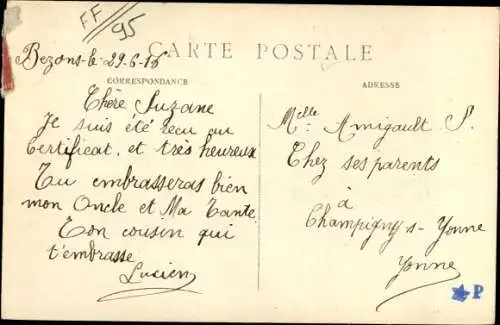 FF
95
Bezons-le 29-6-15
CARTE POSTALE
CORRESPONDANCE
ADRESSE
Chère Suzane
Je suis été recu au
Certificat, et très heureux
Tu embrasseras bien
mon Oncle et Ma Tante.
Ton cousin qui
t'embrasse
Lucien
Melle Amigault S.
Chez ses parents
à
Champigny-s-Yonne
Yonne
P